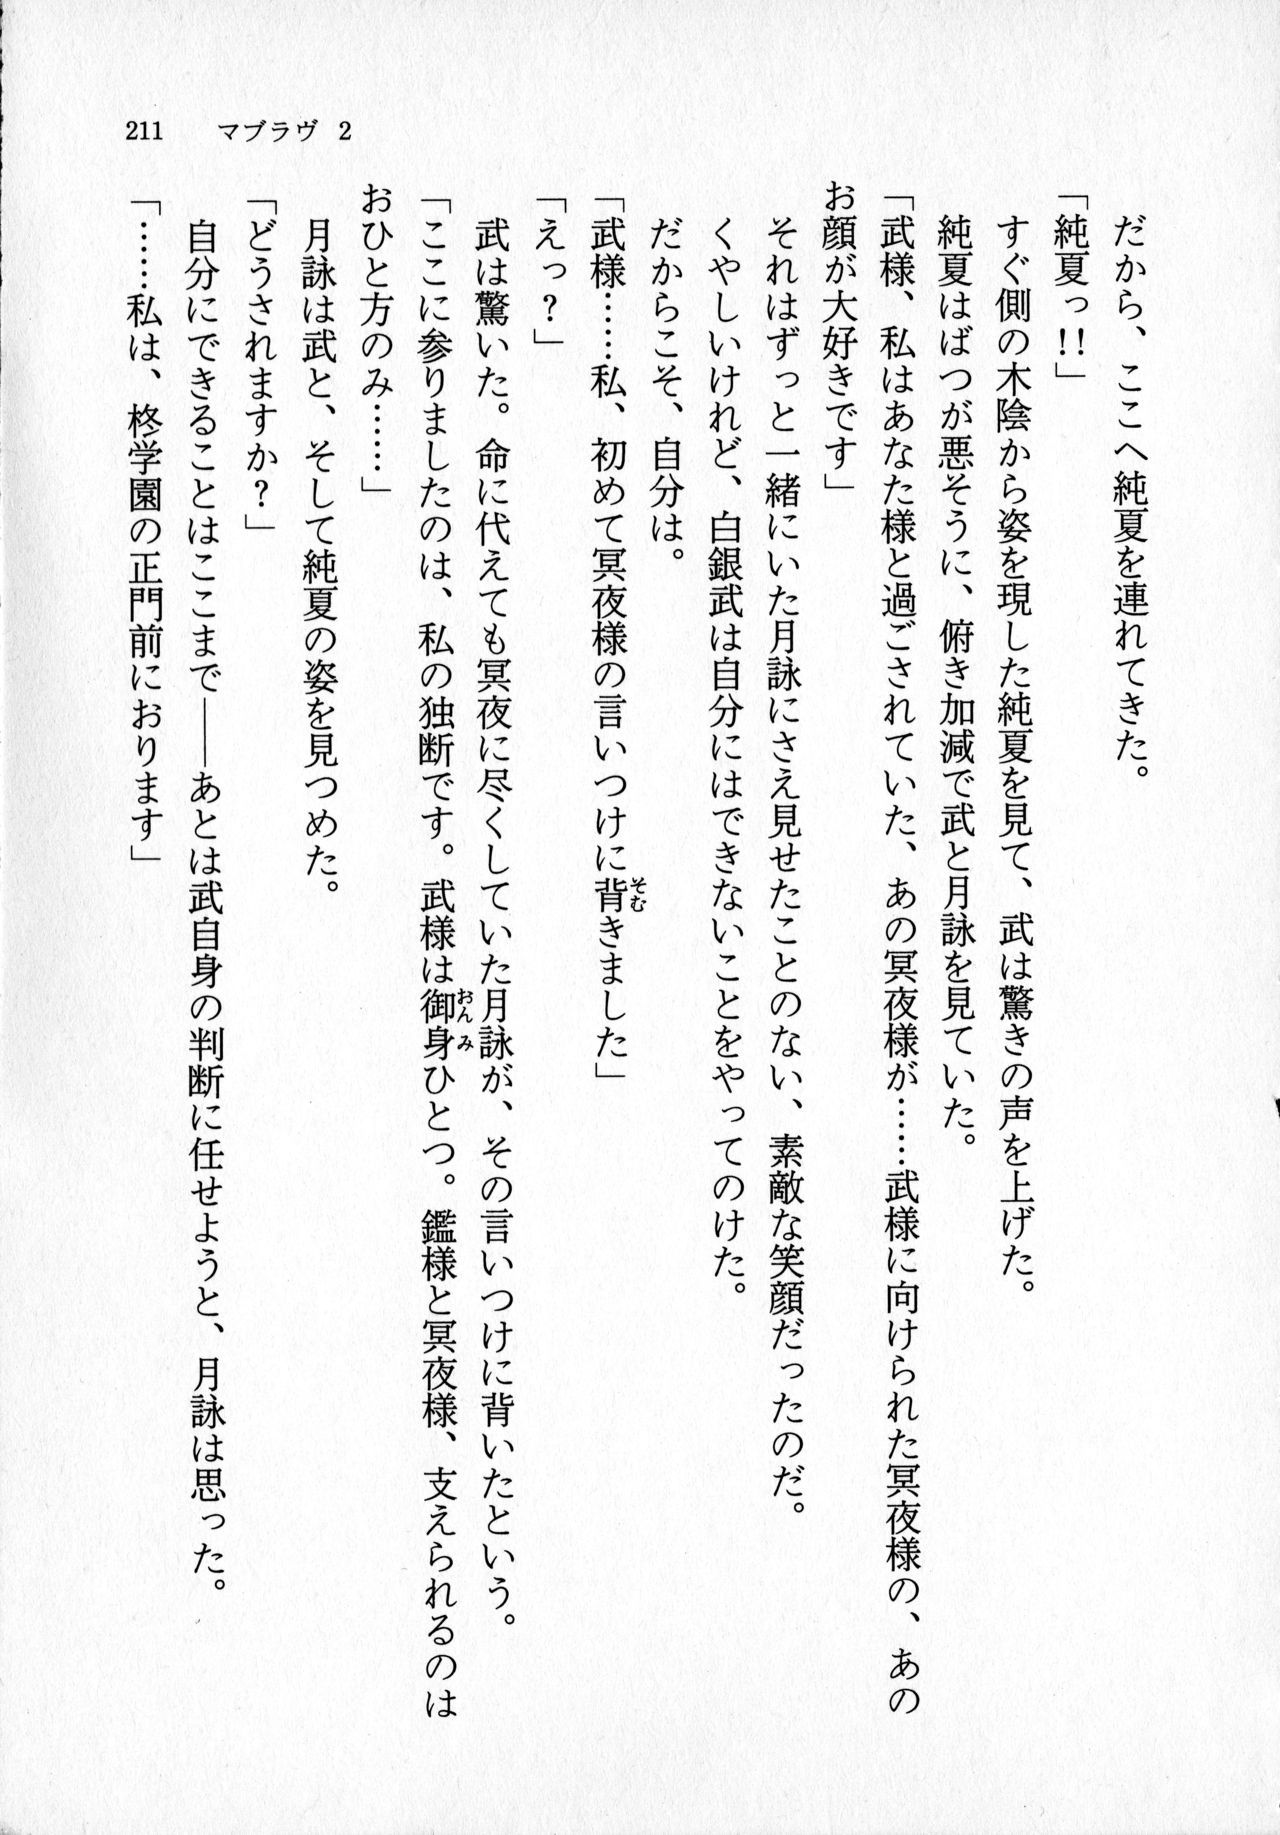 211　マブラヴ 2
だから、ここへ純夏を連れてきた。
「純夏っ!!」
すぐ側の木陰から姿を現した純夏を見て、武は驚きの声を上げた。
純夏はばつが悪そうに、俯き加減で武と月詠を見ていた。
「武様、私はあなた様と過ごされていた、あの冥夜様が……武様に向けられた冥夜様の、あの
お顔が大好きです」
それはずっと一緒にいた月詠にさえ見せたことのない、素敵な笑顔だったのだ。
くやしいけれど、白銀武は自分にはできないことをやってのけた。
だからこそ、自分は。
「武様……私、初めて冥夜様の言いつけに背きました」
そむ
「えっ？」
武は驚いた。命に代えても冥夜に尽くしていた月詠が、その言いつけに背いたという。
「ここに参りましたのは、私の独断です。武様は御身ひとつ。鑑様と冥夜様、支えられるのは
おんみ
おひと方のみ……」
月詠は武と、そして純夏の姿を見つめた。
「どうされますか？」
自分にできることはここまで――あとは武自身の判断に任せようと、月詠は思った。
「……私は、柊学園の正門前におります」